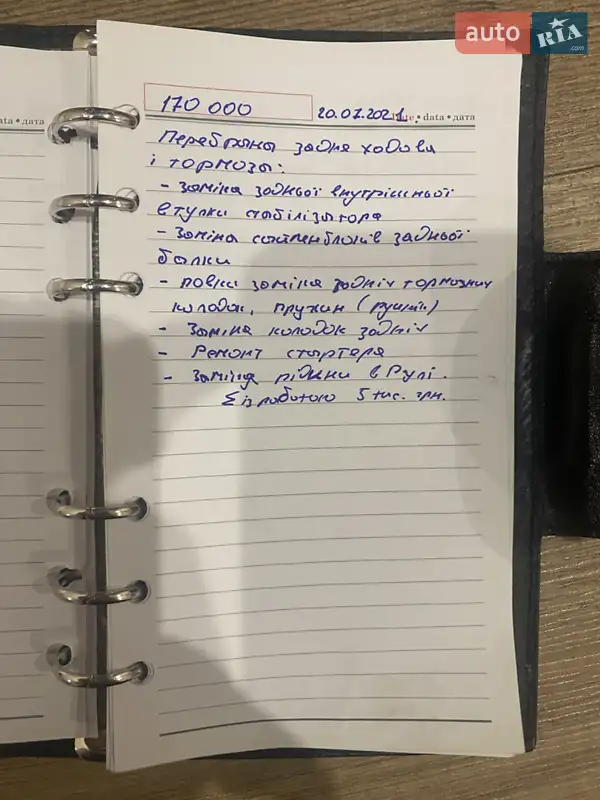 auto RIA .com
170 000
20.07.2021
Date • data • дата
ata • дата
Перебрана задня ходова
і тормозы:
- Заміна задньої внутрішньої
втулки стабілізатора
- Заміна сайленблоків задньої
балки
- повна заміна задніх тормозних
колодок, пружин (ручнік)
- Заміна колодок задніх
- Ремонт стартера
- Заміна рідини в Рулі.
Σ із роботою 5 тис. грн.